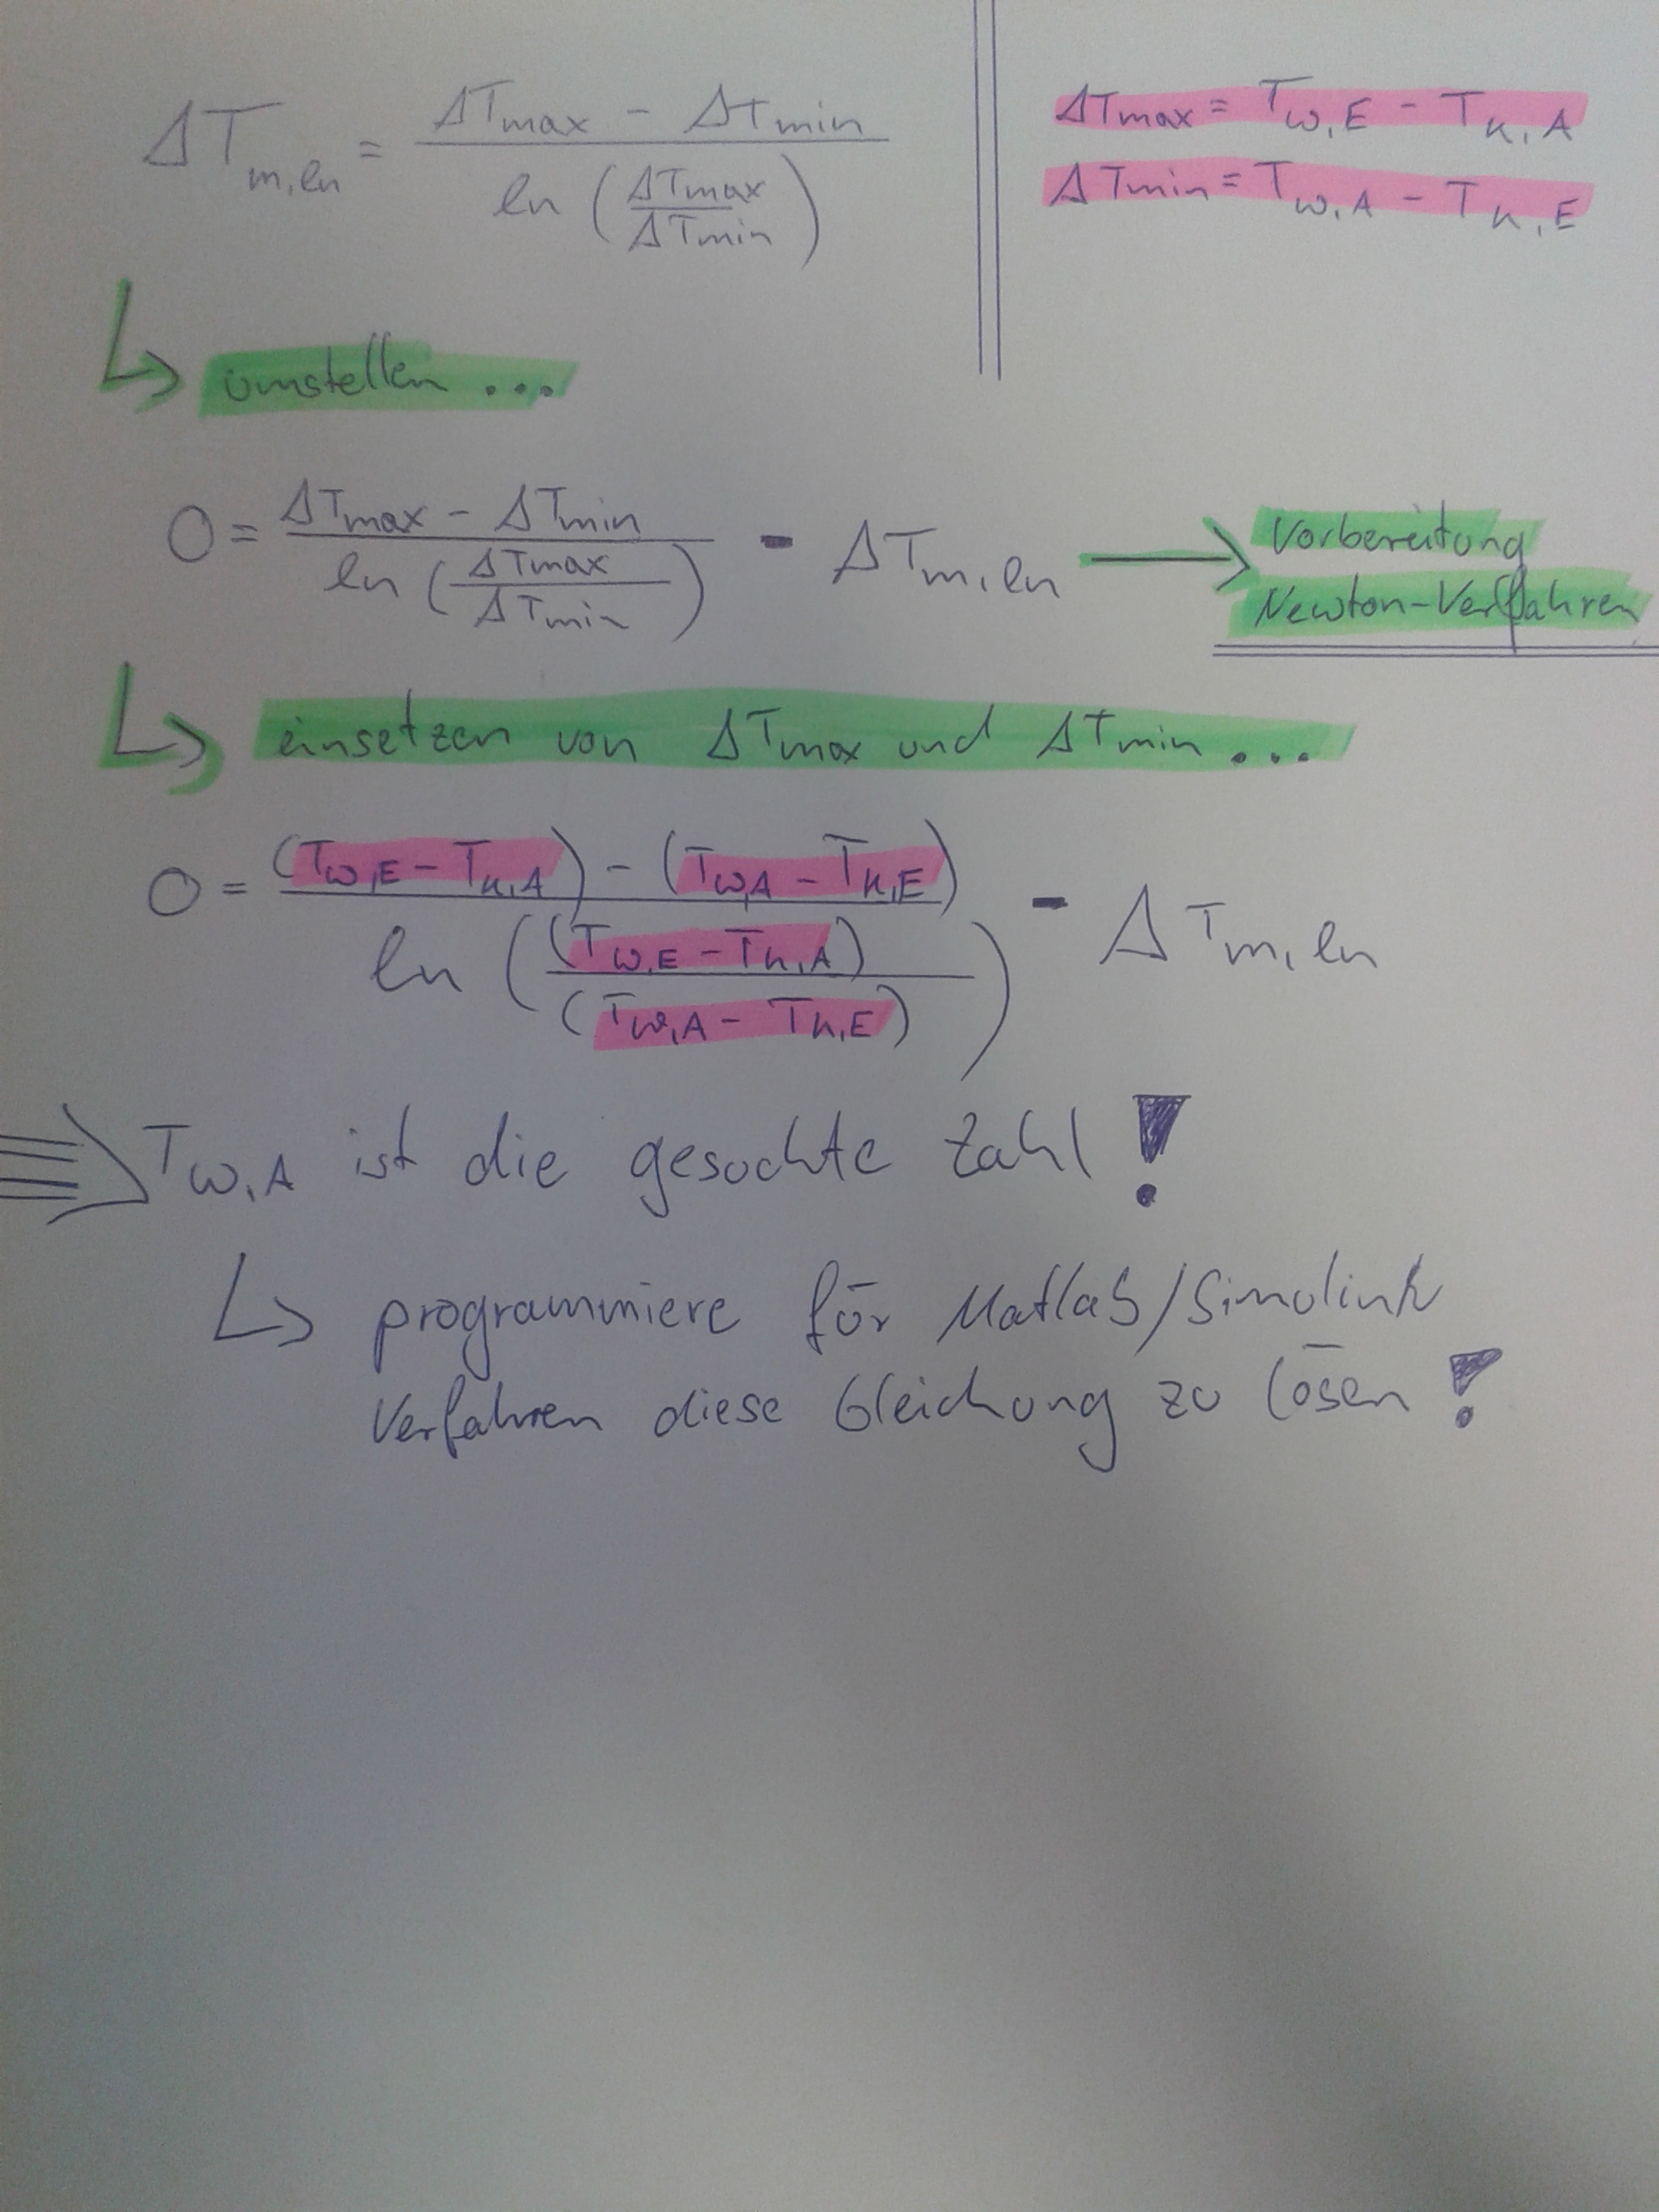 ΔTm,ln = (ΔTmax - ΔTmin) / ln (ΔTmax / ΔTmin)
ΔTmax = Tw,E - TK,A
ΔTmin = Tw,A - TK,E
umstellen ...
0 = (ΔTmax - ΔTmin) / ln (ΔTmax / ΔTmin) - ΔTm,ln
Vorbereitung
Newton-Verfahren
einsetzen von ΔTmax und ΔTmin ...
0 = ((Tw,E - TK,A) - (Tw,A - TK,E)) / ln ((Tw,E - TK,A) / (Tw,A - TK,E)) - ΔTm,ln
Tw,A ist die gesuchte Zahl!
programmiere für Matlab/Simulink
Verfahren diese Gleichung zu lösen!